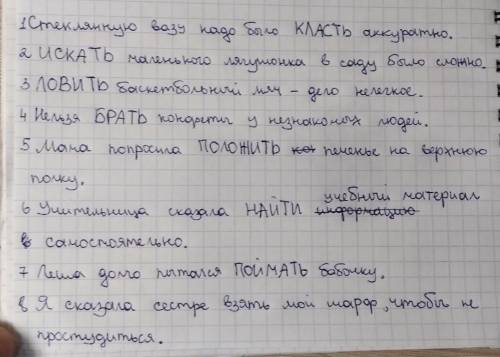 1 Стеклянную вазу надо было КЛАСТЬ аккуратно.
2 ИСКАТЬ маленького лягушонка в саду было сложно.
3 ЛОВИТЬ баскетбольный мяч – дело нелегкое.
4 Нельзя БРАТЬ конфеты у незнакомых людей.
5 Мама попросила ПОЛОЖИТЬ печенье на верхнюю
полку.
учебный материал
6 Учительница сказала НАЙТИ информацию
самостоятельно.
7 Леша долго пытался ПОЙМАТЬ бабочку.
8 Я сказала сестре взять мой шарф, чтобы не
простудиться.